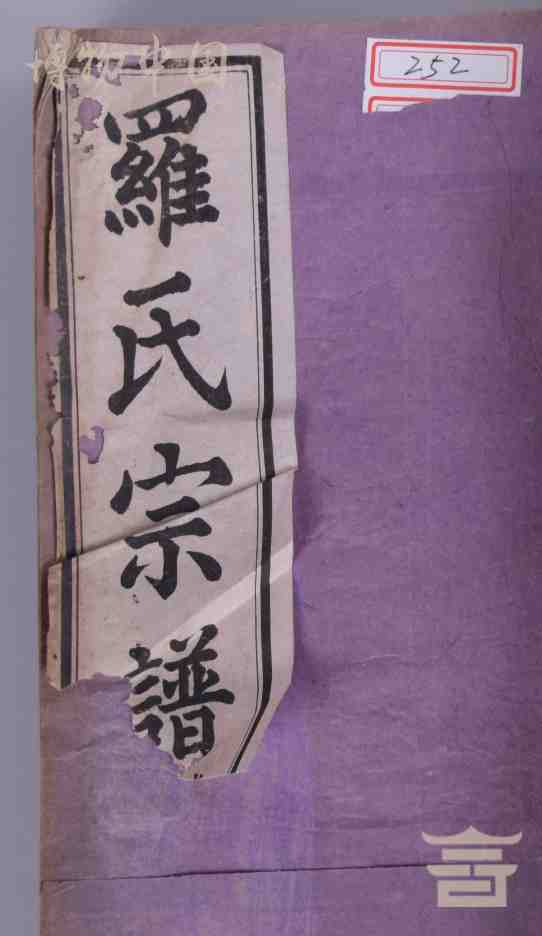 博物中国
252
羅氏宗譜